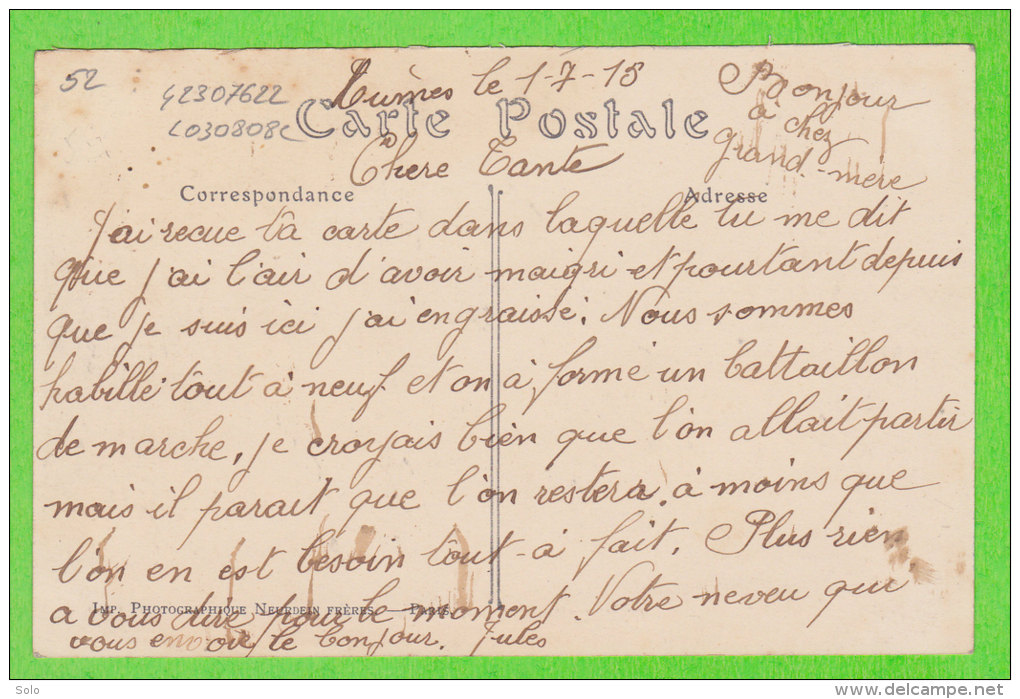 52
42307622
L030808c
le 1-7-18
Bonjour
à chez
grand-mère
Carte Postale
Chere Tante
Correspondance
Adresse
J'ai recue ta carte dans laquelle tu me dit
que j'ai l'air d'avoir maigri et pourtant depuis
que je suis ici j'ai engraissé. Nous sommes
habillé tout à neuf et on à formé un battaillon
de marche, je croyais bien que l'on allait partir
mais il parait que l'on restera à moins que
l'on en est besoin tout-à fait. Plus rien
a vous dire pour le moment. Votre neveu que
vous envoie le bonjour. Jules
Imp. Photographique Neurdein frères. — Paris.
Solo
www.delcampe.net